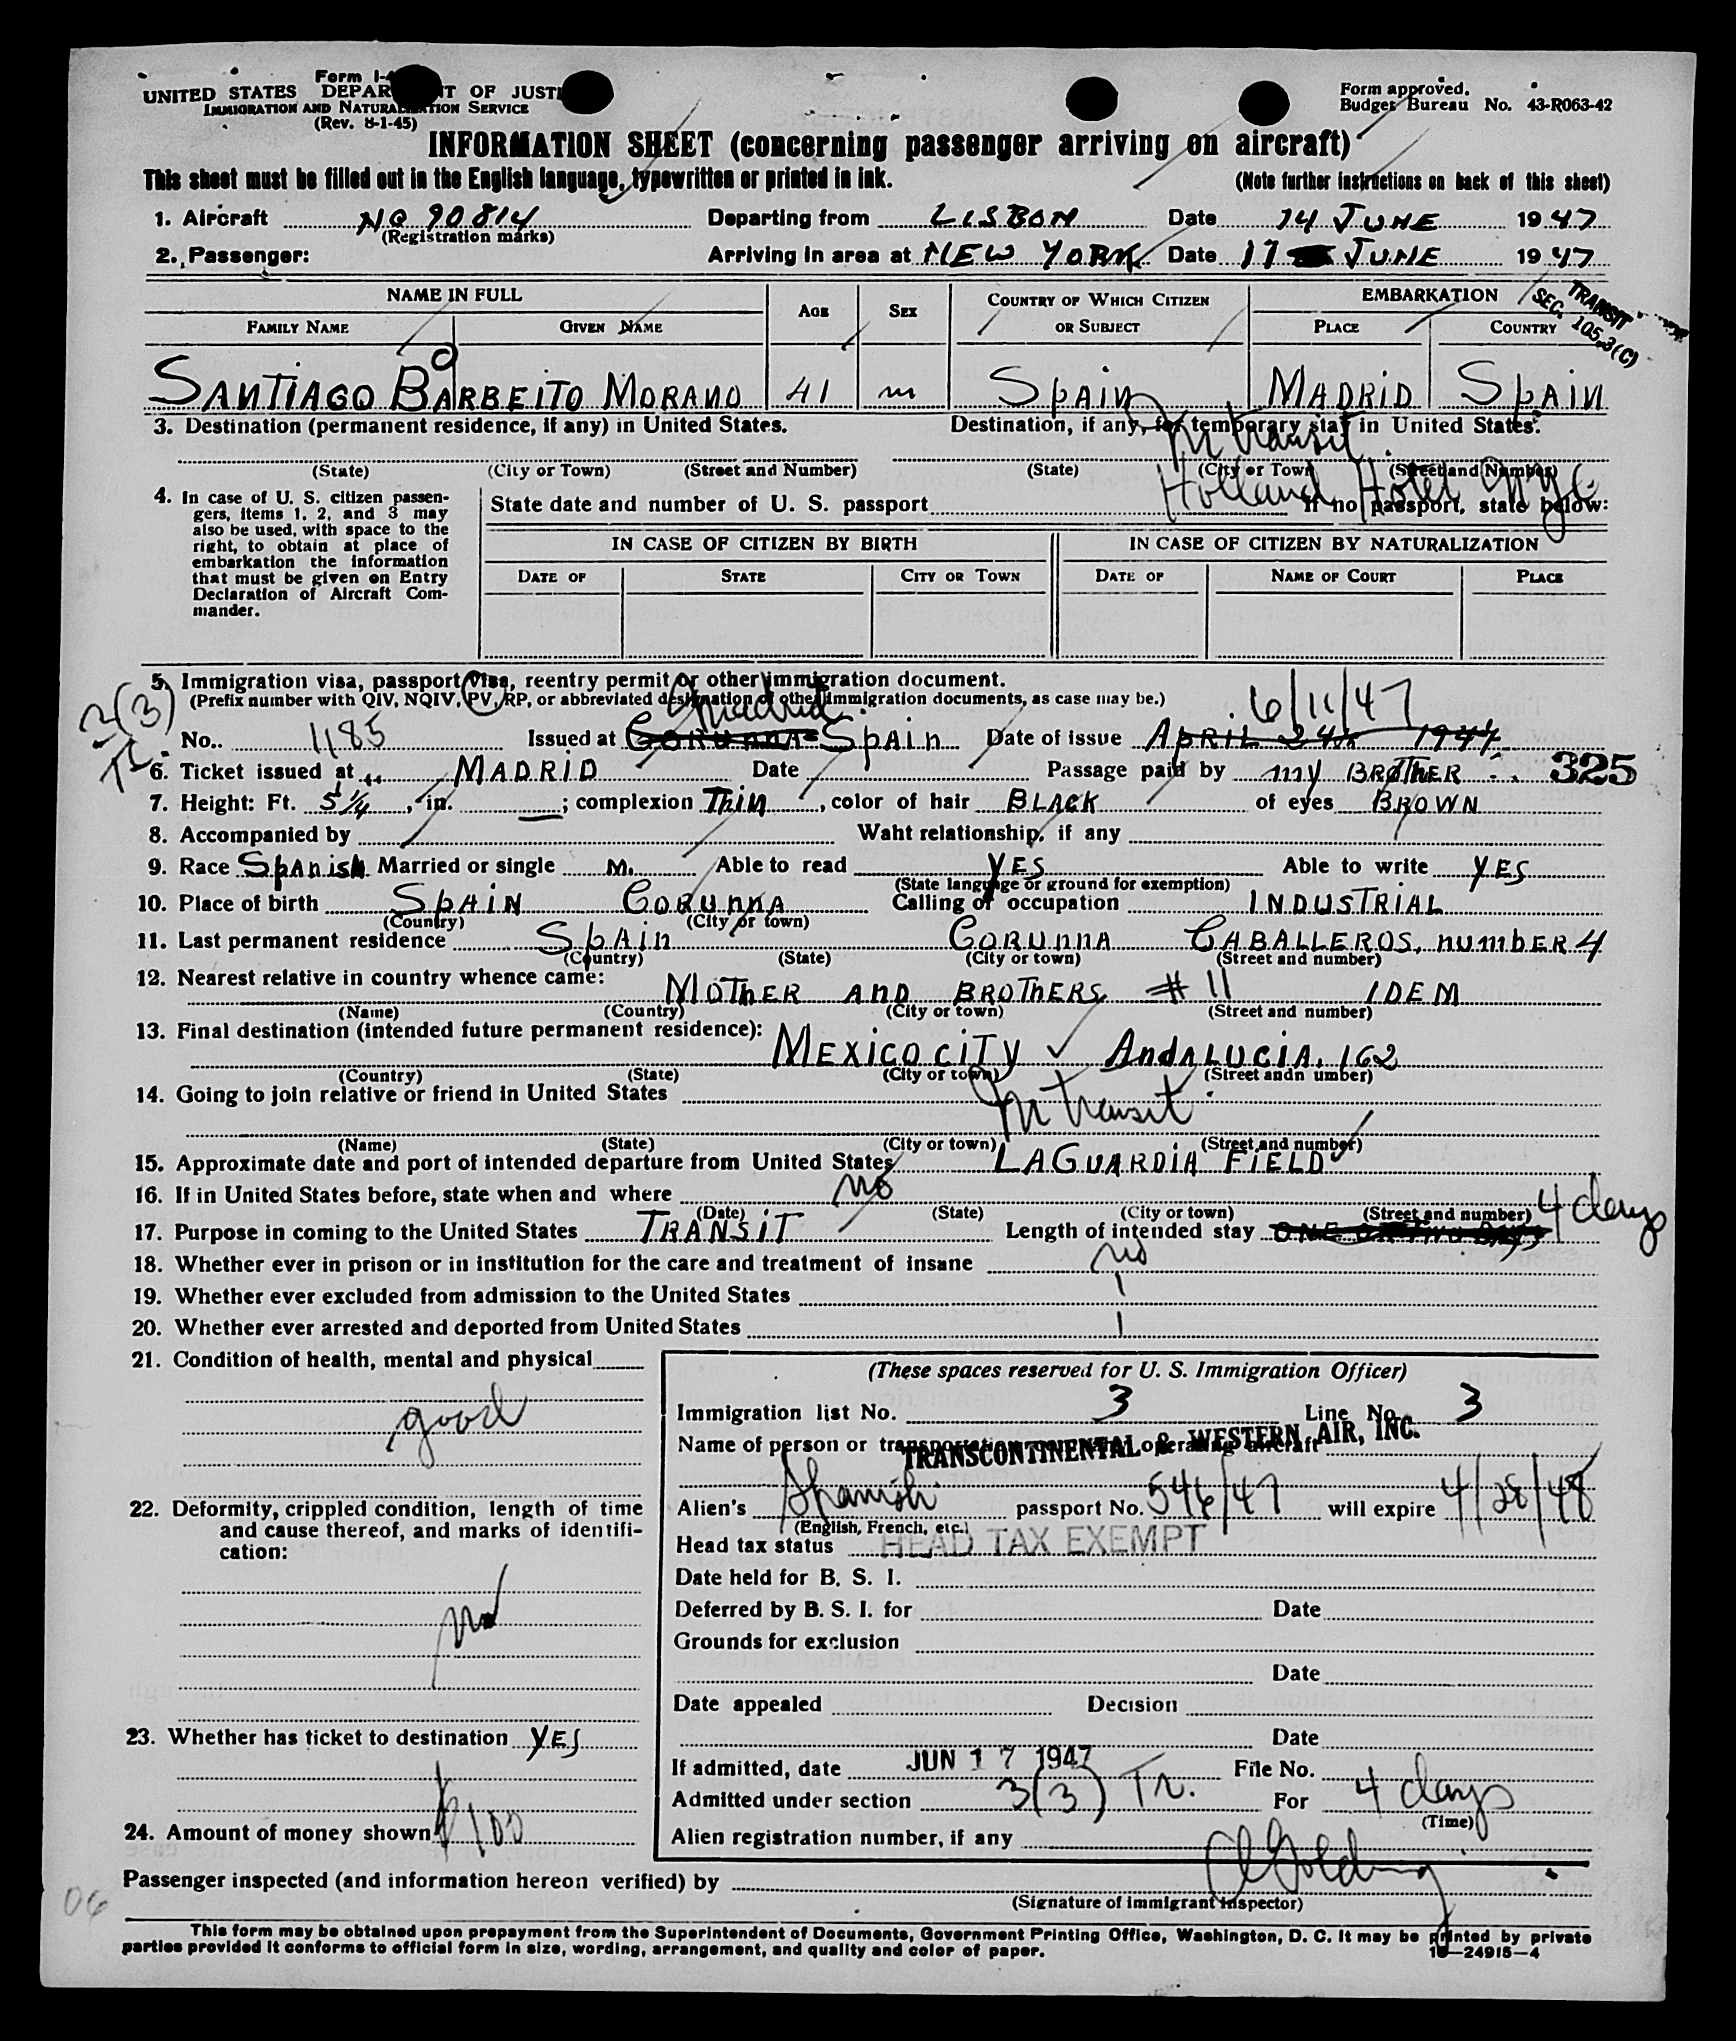 Form I-
UNITED STATES DEPAR T OF JUSTI
IMMIGRATION AND NATURALIZATION SERVICE
(Rev. 8-1-45)
Form approved.
Budget Bureau No. 43-R063-42
INFORMATION SHEET (concerning passenger arriving on aircraft)
This sheet must be filled out in the English language, typewritten or printed in ink.
(Note further instructions on back of this sheet)
1. Aircraft NC 90814 Departing from LISBON Date 14 JUNE 1947
(Registration marks)
2. Passenger: Arriving in area at NEW YORK Date 17 JUNE 1947
NAME IN FULL AGE SEX COUNTRY OF WHICH CITIZEN OR SUBJECT EMBARKATION
FAMILY NAME GIVEN NAME PLACE COUNTRY
TRANSIT
SEC. 105.3(C)
SANTIAGO BARBEITO MORANO 41 m SpAin MADRID SpAiN
3. Destination (permanent residence, if any) in United States. Destination, if any, for temporary stay in United States.
In transit
(State) (City or Town) (Street and Number) (State) (City or Town) (Street and Number)
Holland Hotel NYC
4. In case of U. S. citizen passen-
gers, items 1, 2, and 3 may
also be used, with space to the
right, to obtain at place of
embarkation the information
that must be given on Entry
Declaration of Aircraft Com-
mander.
State date and number of U. S. passport If no passport, state below:
IN CASE OF CITIZEN BY BIRTH IN CASE OF CITIZEN BY NATURALIZATION
DATE OF STATE CITY OR TOWN DATE OF NAME OF COURT PLACE
5. Immigration visa, passport visa, reentry permit or other immigration document.
(Prefix number with QIV, NQIV, PV, RP, or abbreviated designation of other immigration documents, as case may be.)
3(3)
Tr.
Madrid 6/11/47
No. 1185 Issued at CORUNNA SpAiN Date of issue APRIL 24th 1947
6. Ticket issued at MADRID Date Passage paid by my BROTHER 325
7. Height: Ft. 5 1/4, in. ; complexion THiN, color of hair BLACK of eyes BROWN
8. Accompanied by Waht relationship, if any
9. Race SpANiSh Married or single M. Able to read YES Able to write YES
(State language or ground for exemption)
10. Place of birth SpAiN CORUNNA Calling or occupation INDUSTRIAL
(Country) (City or town)
11. Last permanent residence SpAiN CORUNNA CABALLEROS, NUMBER 4
(Country) (State) (City or town) (Street and number)
12. Nearest relative in country whence came:
MOTHER AND BROTHERS # 11 IDEM
(Name) (Country) (City or town) (Street and number)
13. Final destination (intended future permanent residence):
MEXICO CITY ANDALUCIA, 162
(Country) (State) (City or town) (Street andn umber)
14. Going to join relative or friend in United States
In transit
(Name) (State) (City or town) (Street and number)
15. Approximate date and port of intended departure from United States LAGUARDIA FIELD
16. If in United States before, state when and where no
(Date) (State) (City or town) (Street and number)
17. Purpose in coming to the United States TRANSIT Length of intended stay ONE OR TWO DAYS 4 days
18. Whether ever in prison or in institution for the care and treatment of insane no
19. Whether ever excluded from admission to the United States
20. Whether ever arrested and deported from United States
21. Condition of health, mental and physical
good
22. Deformity, crippled condition, length of time
and cause thereof, and marks of identifi-
cation:
no
23. Whether has ticket to destination YES
24. Amount of money shown $100
(These spaces reserved for U. S. Immigration Officer)
Immigration list No. 3 Line No. 3
Name of person or transportation operating aircraft
TRANSCONTINENTAL & WESTERN AIR, INC.
Alien's Spanish passport No. 546/47 will expire 4/28/48
(English, French, etc.)
Head tax status HEAD TAX EXEMPT
Date held for B. S. I.
Deferred by B. S. I. for Date
Grounds for exclusion
Date
Date appealed Decision
Date
If admitted, date JUN 17 1947 File No.
Admitted under section 3(3) Tr. For 4 days
(Time)
Alien registration number, if any
Passenger inspected (and information hereon verified) by
(Signature of immigrant inspector)
06
This form may be obtained upon prepayment from the Superintendent of Documents, Government Printing Office, Washington, D. C. It may be printed by private
parties provided it conforms to official form in size, wording, arrangement, and quality and color of paper.
16—24915—4